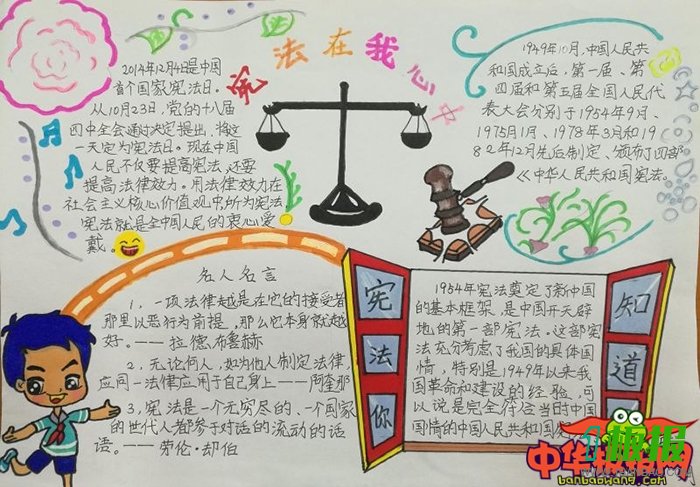 宪法在我心中
2014年12月4日是中国
首个国家宪法日。
从10月23日,党的十八届
四中全会通过决定提出,将这
一天定为宪法日。现在中国
人民不仅要提高宪法,还要
提高法律效力。用法律效力在
社会主义核心价值观中,所为宪法
宪法就是全中国人民的衷心爱
戴。
1949年10月,中国人民共
和国成立后,第一届、第
四届和第五届全国人民代
表大会分别于1954年9月、
1975月1月、1978年3月和19
82年12月先后制定、颁布了四部
《中华人民共和国宪法。
名人名言
1、一项法律越是在它的接受者
那里以恶行为前提,那么它本身就越
好。——拉德布鲁赫
2、无论何人,如为他人制定法律,
应同一法律应用于自己身上——阿奎那
3、宪法是一个无穷尽的、一个国家
的世代人都参于对话的流动的话
语。——劳伦·却伯
宪
法
你
1954年宪法奠定了新中国
的基本框架,是中国开天辟
地的第一部宪法。这部宪
法充分考虑了我国的具体国
情,特别是1949年以来我
国革命和建设的经验,可
以说是完全符合当时中国
国情的中国人民共和国
知
道
banbaowang9.com